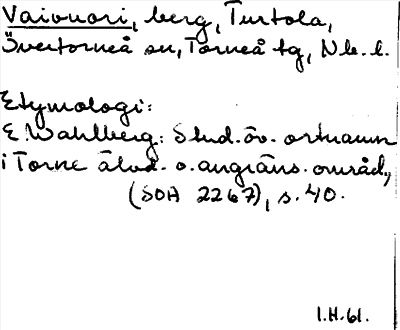 Vaivuori, berg, Turtola,
Övertorneå sn, Torneå tg, Nb. l.
Etymologi:
E Wahlberg: Stud. öv. ortnamn
i Torne älvd. o. angräns. områd.,
(SOA 2267), s. 40.
I.H.61.